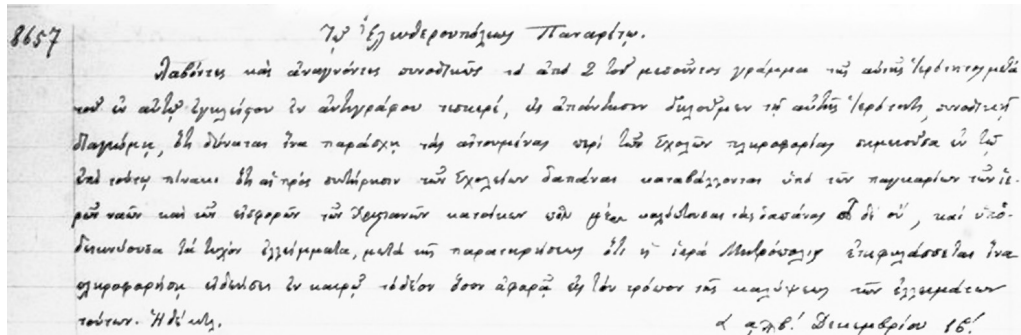 8657 Τῷ Ἐλευθερουπόλεως Παναρέτῳ.
Λαβόντες καὶ ἀναγνόντες συνοδικῶς τὸ ἀπὸ 2 τοῦ μεσοῦντος γράμμα τῆς αὐτῆς Ἱερότητος μετὰ
τοῦ ἐν αὐτῷ ἐγκλείστου ἐν ἀντιγράφῳ τεσκερέ, εἰς ἀπάντησιν δηλοῦμεν τῇ αὐτῆς Ἱερότητι, συνοδικῇ
διαγνώμῃ, ὅτι δύναται ἵνα παράσχῃ τὰς αἰτουμένας περὶ τῶν Σχολῶν πληροφορίας σημειοῦσα ἐν τῷ
ἐπὶ τούτῳ πίνακι ὅτι αἱ πρὸς συντήρησιν τῶν Σχολείων δαπάναι καταβάλλονται ὑπὸ τῶν παγκαρίων τῶν ἱε-
ρῶν ναῶν καὶ τῶν εἰσφορῶν τῶν Χριστιανῶν κατοίκων καλύπτουσαι τὰς δαπάνας δὲ οὔ, καὶ ὑπο-
δεικνύουσα τὰ τυχὸν ἐλλείμματα, μετὰ τῆς παρατηρήσεως ὅτι ἡ ἱερὰ Μητρόπολις ἐπιφυλάσσεται ἵνα
πληροφορήσῃ ἐν καιρῷ τὸ δέον ὅσον ἀφορᾷ εἰς τὸν τρόπον τῆς καλύψεως τῶν ἐλλειμμάτων
τούτων. Ἡ δὲ κτλ. Δεκεμβρίου